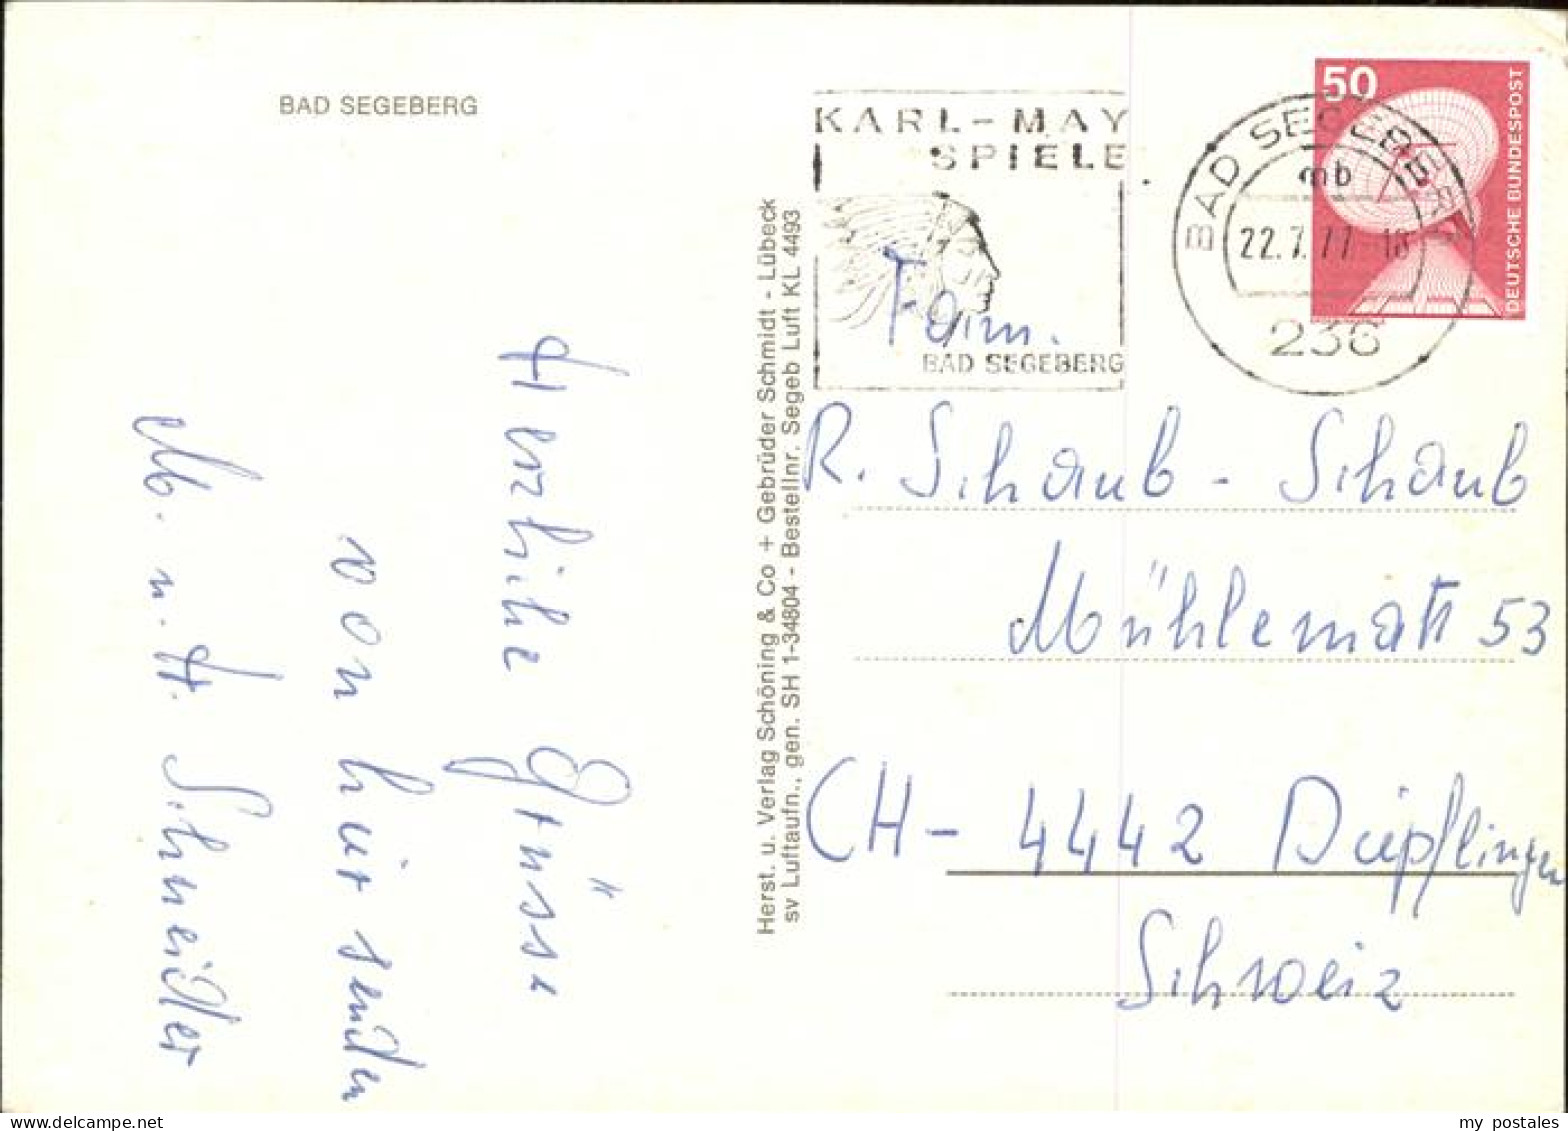 BAD SEGEBERG
Herzliche Grüsse
von hier senden
M. u. H. Schneider
Herst. u. Verlag Schöning & Co + Gebrüder Schmidt - Lübeck
sv Luftaufn., gen. SH 1-34804 - Bestellnr. Segeb Luft KL 4493
KARL-MAY
SPIELE
BAD SEGEBERG
BAD SEGEBERG
mb
22.7.77-18
236
50
DEUTSCHE BUNDESPOST
Fam.
R. Schaub - Schaub
Mühlematt 53
CH- 4442 Diepflingen
Schweiz
my postales